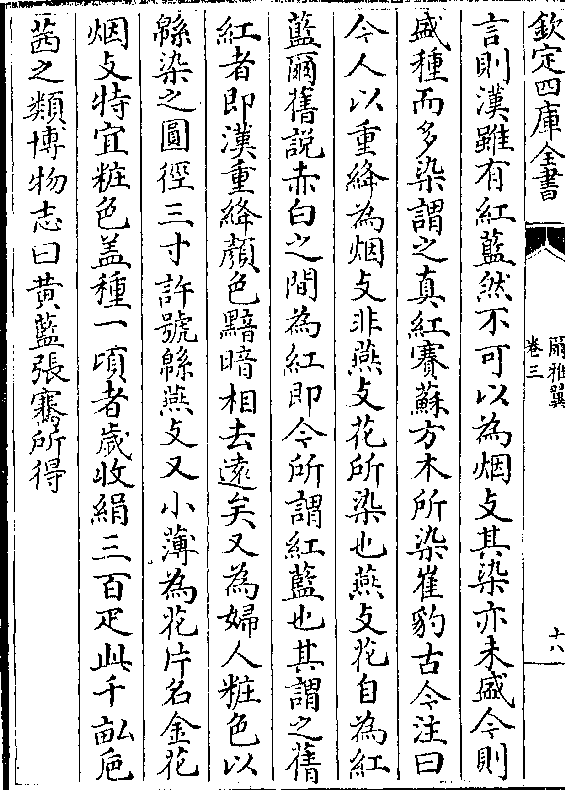 欽定四庫全書
爾雅翼
卷三
十八
言則漢雖有紅藍然不可以為烟攴其染亦未盛今則
盛種而多染謂之真紅賽蘇方木所染崔豹古今注曰
今人以重絳為烟攴非燕攴花所染也燕攴花自為紅
藍爾舊説赤白之間為紅即今所謂紅藍也其謂之舊
紅者即漢重絳顏色黯暗相去遠矣又為婦人粧色以
緜染之圓徑三寸許號緜燕攴又小薄為花片名金花
烟攴特宜粧色盖種一頃者歲收絹三百疋此千畝巵
茜之類博物志曰黄藍張騫所得